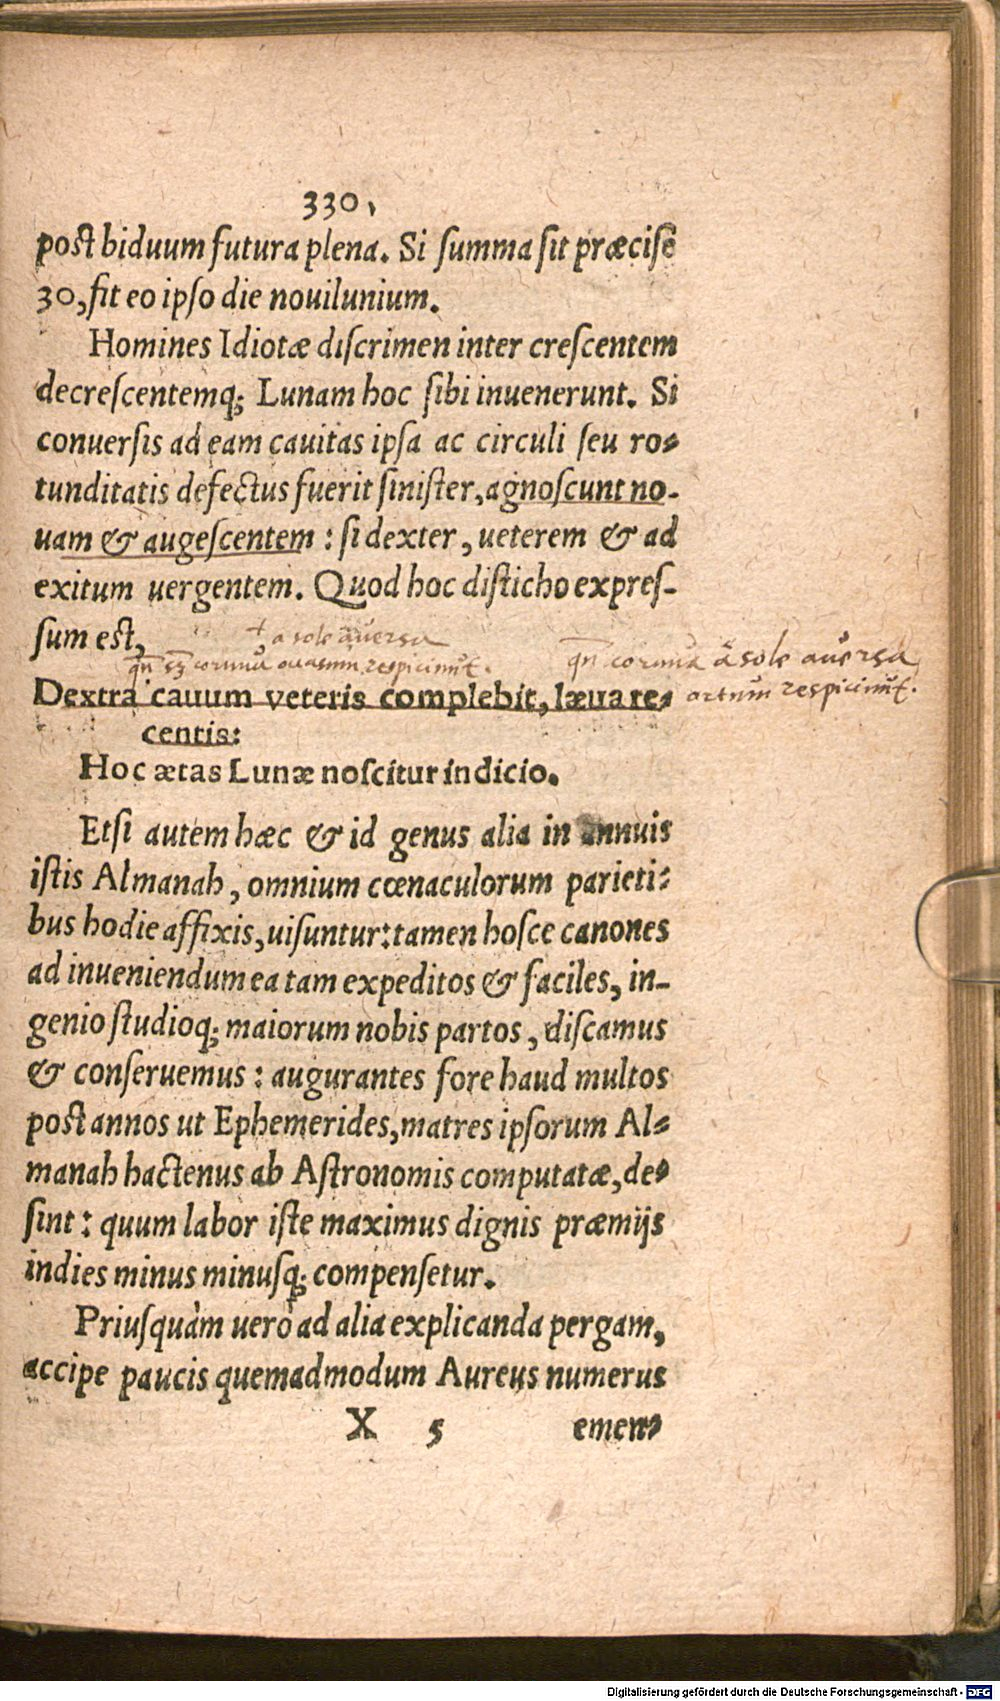 330.
post biduum futura plena. Si summa sit præcisè
30, fit eo ipso die nouilunium.
Homines Idiotæ discrimen inter crescentem
decrescentemq; Lunam hoc sibi inuenerunt. Si
conuersis ad eam cauitas ipsa ac circuli seu ro-
tunditatis defectus fuerit sinister, agnoscunt no-
uam & augescentem : si dexter, ueterem & ad
exitum uergentem. Quod hoc disticho expres-
sum est,
+ a sole auersa
qn̄ cornua occasum respiciunt.
qn̄ cornua à sole auersa
ortum respiciunt.
Dextra cauum veteris complebit, læua re-
centis:
Hoc ætas Lunæ noscitur indicio.
Etsi autem hæc & id genus alia in annuis
istis Almanah, omnium cœnaculorum parieti-
bus hodie affixis, uisuntur: tamen hosce canones
ad inueniendum ea tam expeditos & faciles, in-
genio studioq; maiorum nobis partos, discamus
& conseruemus : augurantes fore haud multos
post annos ut Ephemerides, matres ipsorum Al-
manah hactenus ab Astronomis computatæ, de-
sint : quum labor iste maximus dignis præmijs
indies minus minusq; compensetur.
Priusquàm uerò ad alia explicanda pergam,
accipe paucis quemadmodum Aureus numerus
X 5 emen-
Digitalisierung gefördert durch die Deutsche Forschungsgemeinschaft - DFG